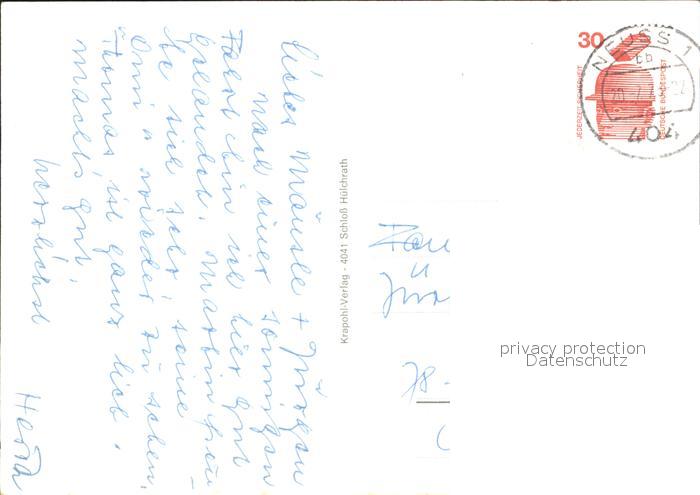 Liebes Mäusle + Jürgen
nach einer sonnigen
Fahrt bin ich hier gut
gelandet. Martin freu-
te sich sehr, seine
Omi wieder zu sehen.
Thomas ist ganz lieb.
Machts gut,
herzlichst
Herta
Krapohl-Verlag - 4041 Schloß Hülchrath
u
78-
30
JEDERZEIT SICHERHEIT
DEUTSCHE BUNDESPOST
NEUSS 1
bb
404
privacy protection
Datenschutz